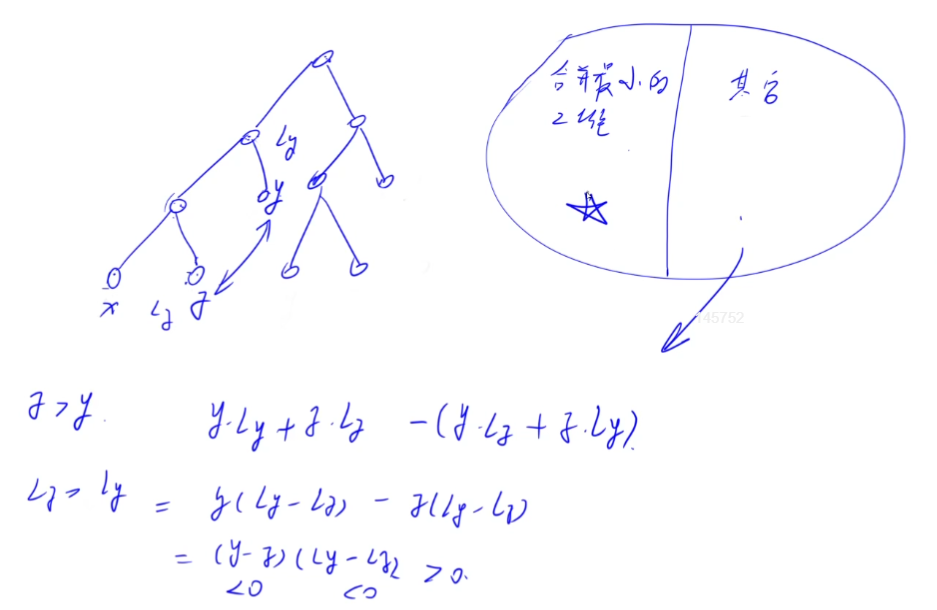 Ly
y
x Lz z
合并最小的
2堆
其它
745752
z > y. y·Ly + z·Lz - (y·Lz + z·Ly).
Lz > Ly = y(Ly - Lz) - z(Ly - Lz)
= (y - z)(Ly - Lz) > 0.
<0 <0